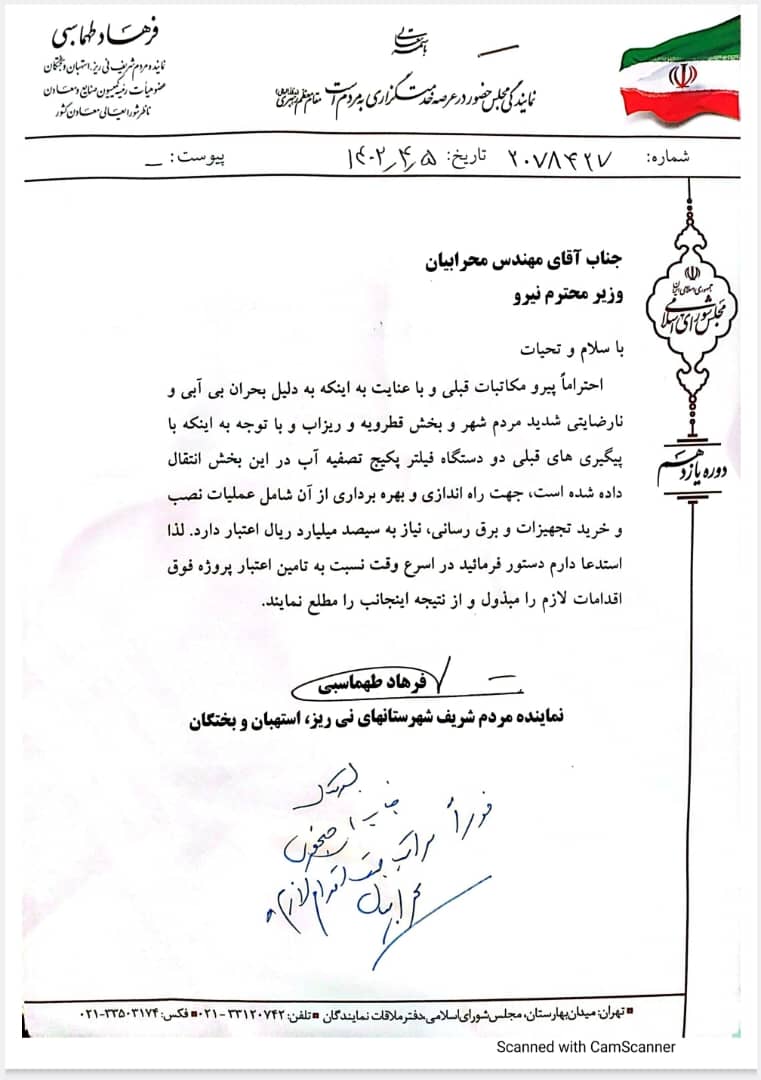 باسمه تعالی
نمایندگی مجلس حضور در عرصه خدمتگزاری به مردم است مقام معظم رهبری
فرهاد طهماسبی
نماینده مردم شریف نی ریز، استهبان و بختگان
عضو هیات رئیسه کمیسیون صنایع و معادن
ناظر شورای عالی معادن کشور
شماره: ۲۰۷۸۴۲۷ تاریخ: ۱۴۰۲٫۴٫۵ پیوست: ـ
جمهوری اسلامی ایران
مجلس شورای اسلامی
دوره یازدهم
جناب آقای مهندس محرابیان
وزیر محترم نیرو
با سلام و تحیات
احتراماً پیرو مکاتبات قبلی و با عنایت به اینکه به دلیل بحران بی آبی و
نارضایتی شدید مردم شهر و بخش قطرویه و ریزاب و با توجه به اینکه با
پیگیری های قبلی دو دستگاه فیلتر پکیج تصفیه آب در این بخش انتقال
داده شده است، جهت راه اندازی و بهره برداری از آن شامل عملیات نصب
و خرید تجهیزات و برق رسانی، نیاز به سیصد میلیارد ریال اعتبار دارد. لذا
استدعا دارم دستور فرمائید در اسرع وقت نسبت به تامین اعتبار پروژه فوق
اقدامات لازم را مبذول و از نتیجه اینجانب را مطلع نمایند.
فرهاد طهماسبی
نماینده مردم شریف شهرستانهای نی ریز، استهبان و بختگان
فوراً مراتب جهت اقدام لازم
محرابیان
تهران: میدان بهارستان، مجلس شورای اسلامی، دفتر ملاقات نمایندگان ■ تلفن: ۳۳۱۲۰۷۴۲-۰۲۱ ■ فکس: ۳۳۵۰۳۱۷۴-۰۲۱
Scanned with CamScanner